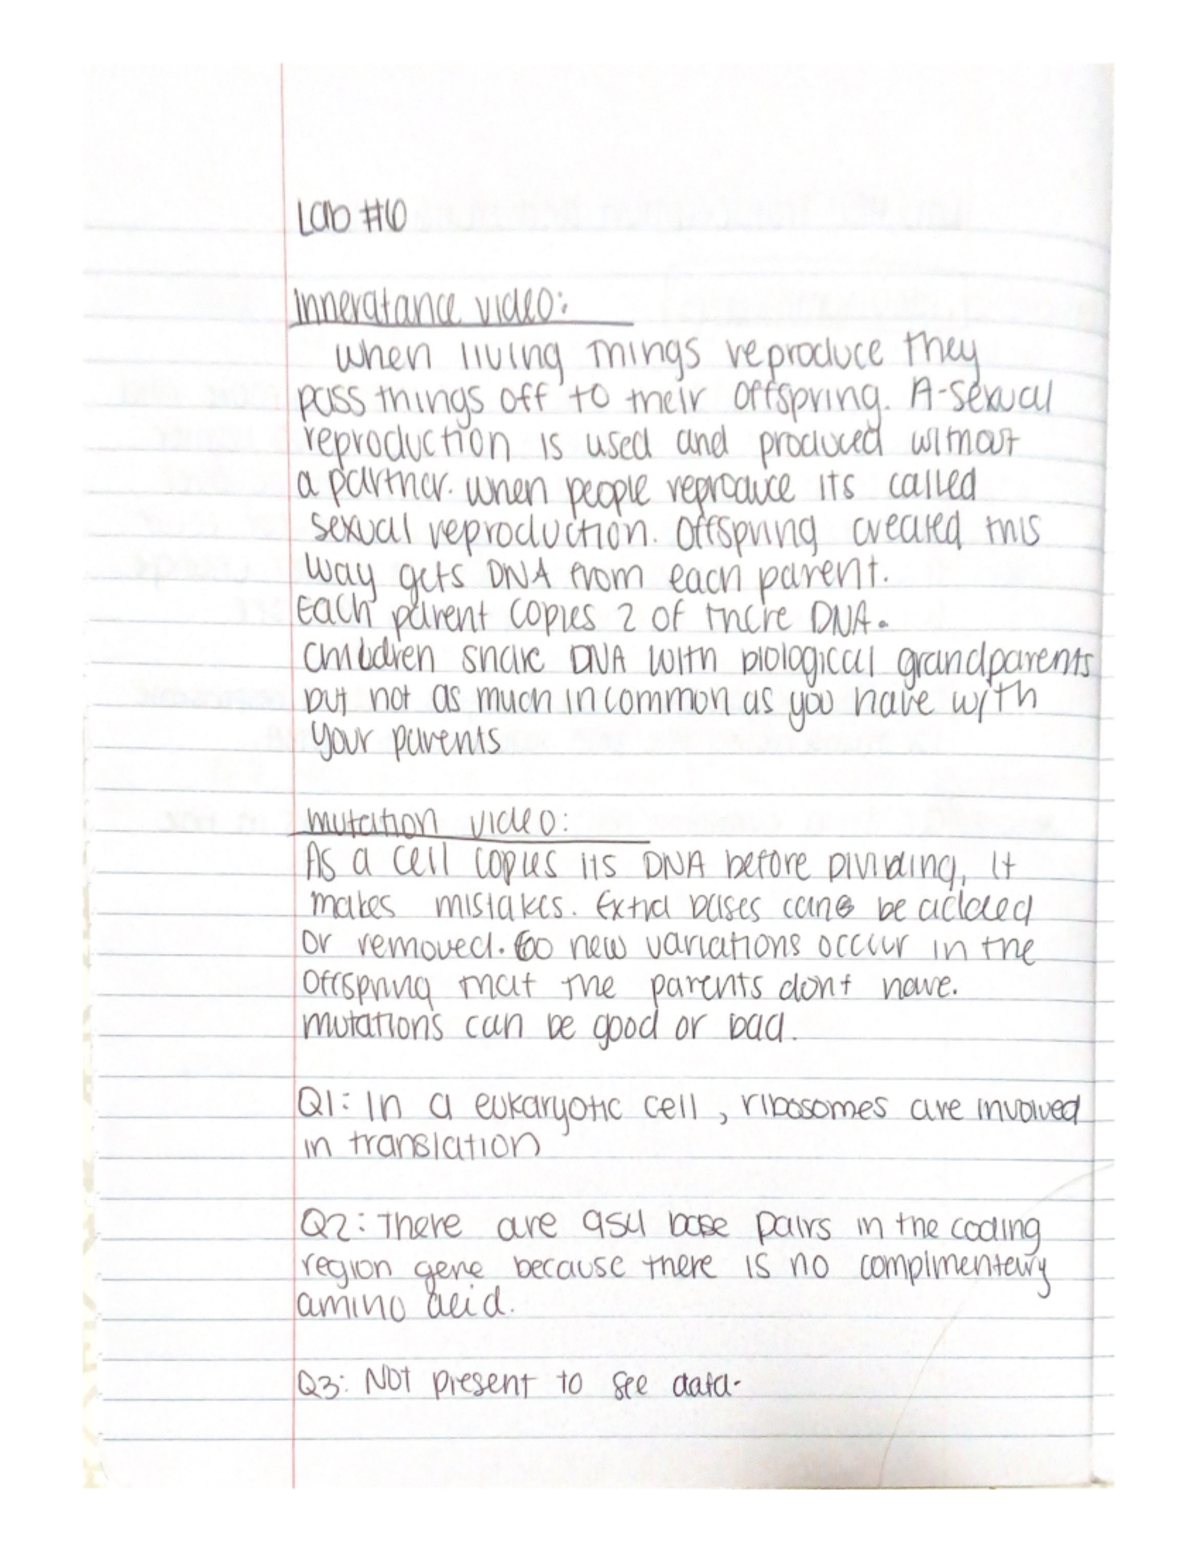 Lab #6
Inneratance video:
When living things reproduce they
pass things off to their offspring. A-sexual
reproduction is used and produced without
a partner. When people reproduce its called
sexual reproduction. Offspring created this
way gets DNA from each parent.
Each parent copies 2 of there DNA.
Children share DNA with biological grandparents
but not as much in common as you have with
your parents
Mutation video:
As a cell copies its DNA before dividing, it
makes mistakes. Extra bases can be added
or removed. So new variations occur in the
offspring that the parents dont have.
Mutations can be good or bad.
Q1: In a eukaryotic cell, ribosomes are involved
in translation
Q2: There are 954 base pairs in the coding
region gene because there is no complimentary
amino acid.
Q3: Not present to see data.